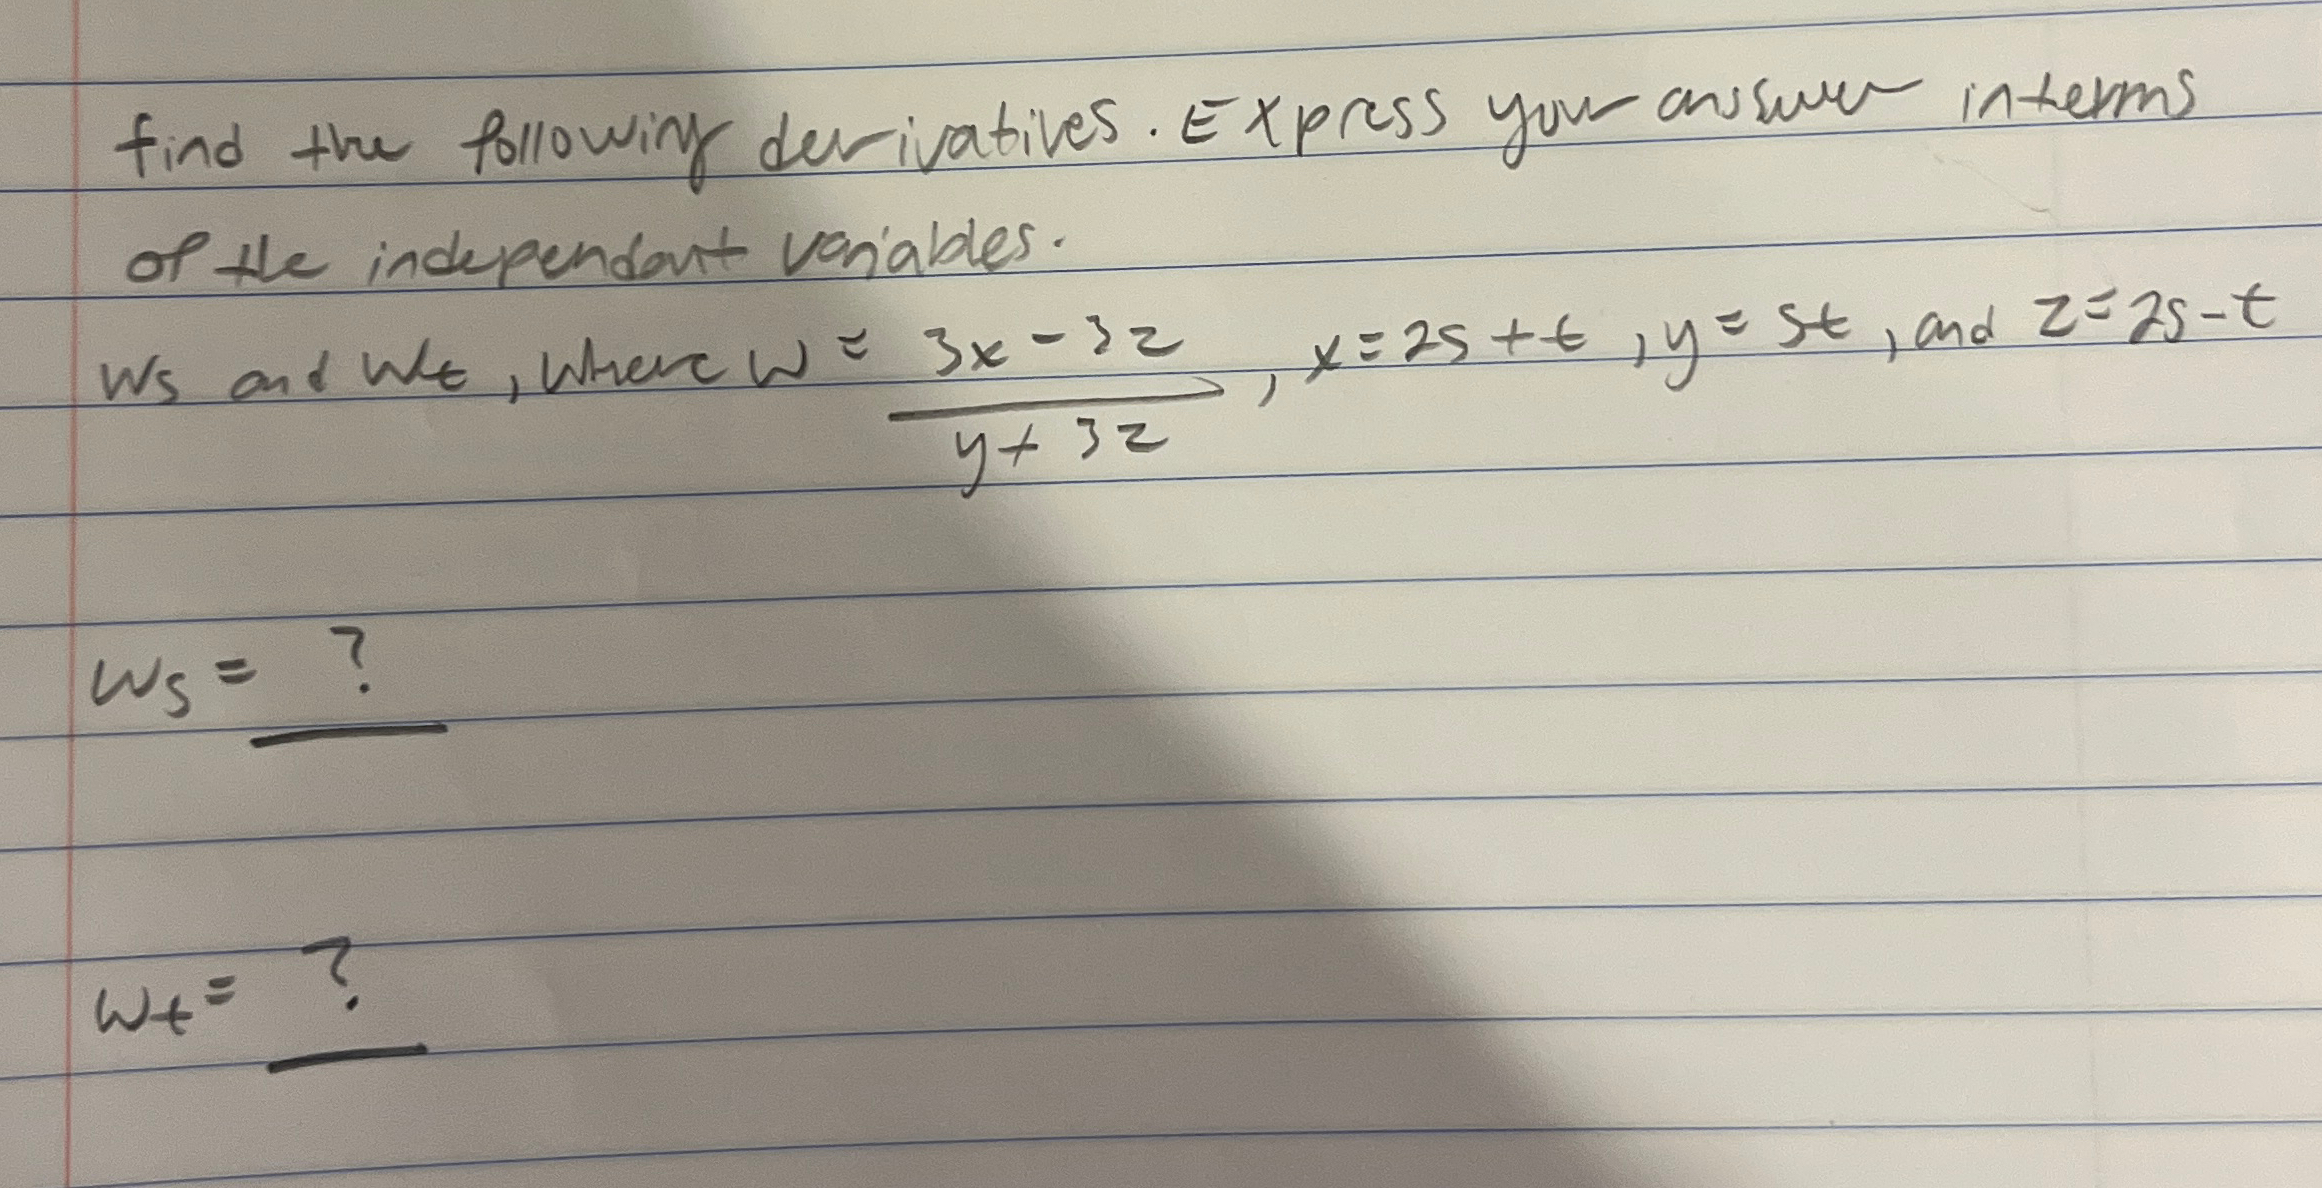 find the following derivatives. Express your answer in terms
of the independant variables.
Ws and Wt, where W = 3x - 3z / y + 3z, x = 2s + t, y = st, and z = 2s - t
Ws = ?
Wt = ?